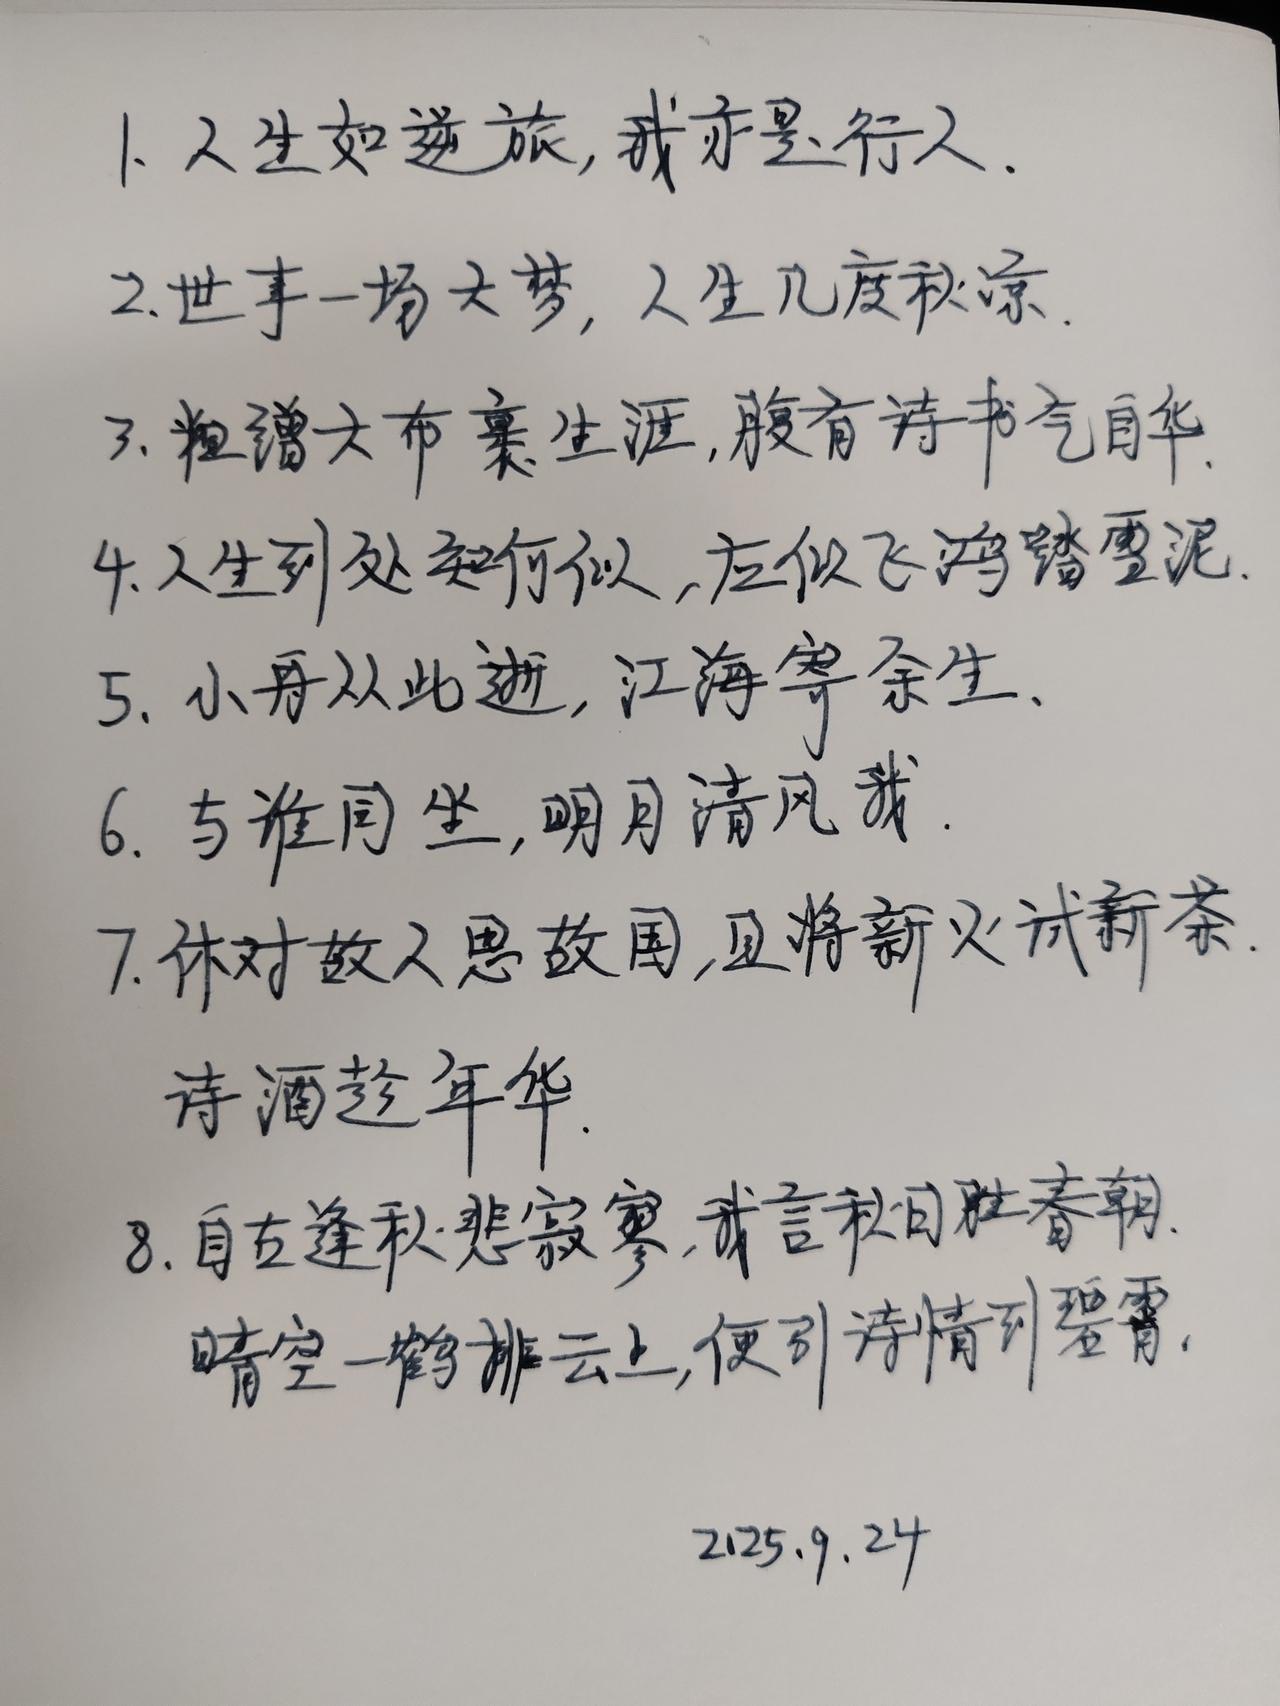 1. 人生如逆旅, 我亦是行人.
2. 世事一场大梦, 人生几度秋凉.
3. 粗缯大布裹生涯, 腹有诗书气自华.
4. 人生到处知何似, 应似飞鸿踏雪泥.
5. 小舟从此逝, 江海寄余生.
6. 与谁同坐, 明月清风我.
7. 休对故人思故国, 且将新火试新茶.
诗酒趁年华.
8. 自古逢秋悲寂寥, 我言秋日胜春朝.
晴空一鹤排云上, 便引诗情到碧霄.
2025.9.24